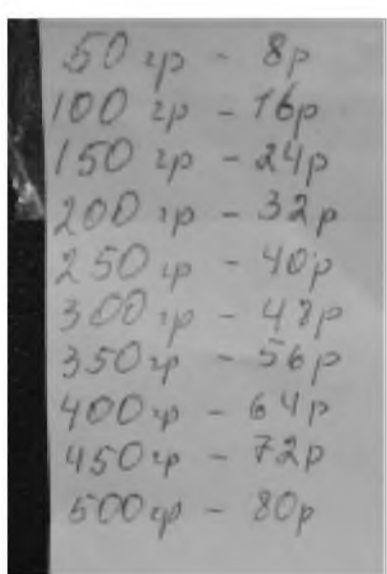 50 гр - 8р
100 гр - 16р
150 гр - 24р
200 гр - 32р
250 гр - 40р
300 гр - 48р
350 гр - 56р
400 гр - 64р
450 гр - 72р
500 гр - 80р